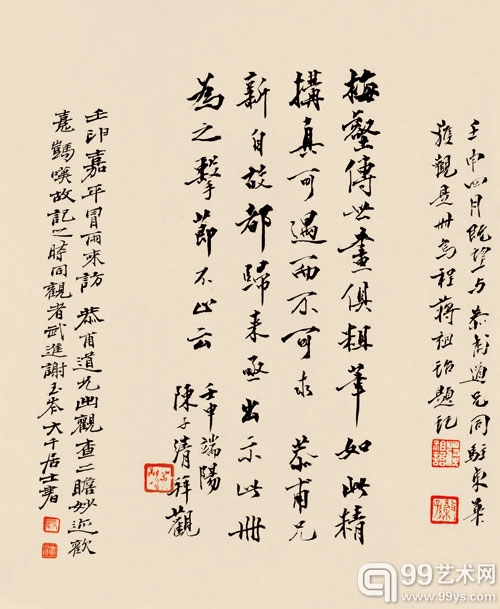 壬申四月既望与恭甫道兄同駐東華
獲觀是冊烏程蔣祖詒題記
梅壑傳世畫俱粗筆如此精
搆真可遇而不可求 恭甫兄
新自故都歸来亟出示此冊
為之擊節不止云
壬申端陽
陳子清拜觀
壬申嘉平冒雨来訪 恭甫道兄出觀查二瞻妙迹歡
喜讚嘆故記之時同觀者武進謝玉岑大千居士書
99艺术网
www.99ys.com